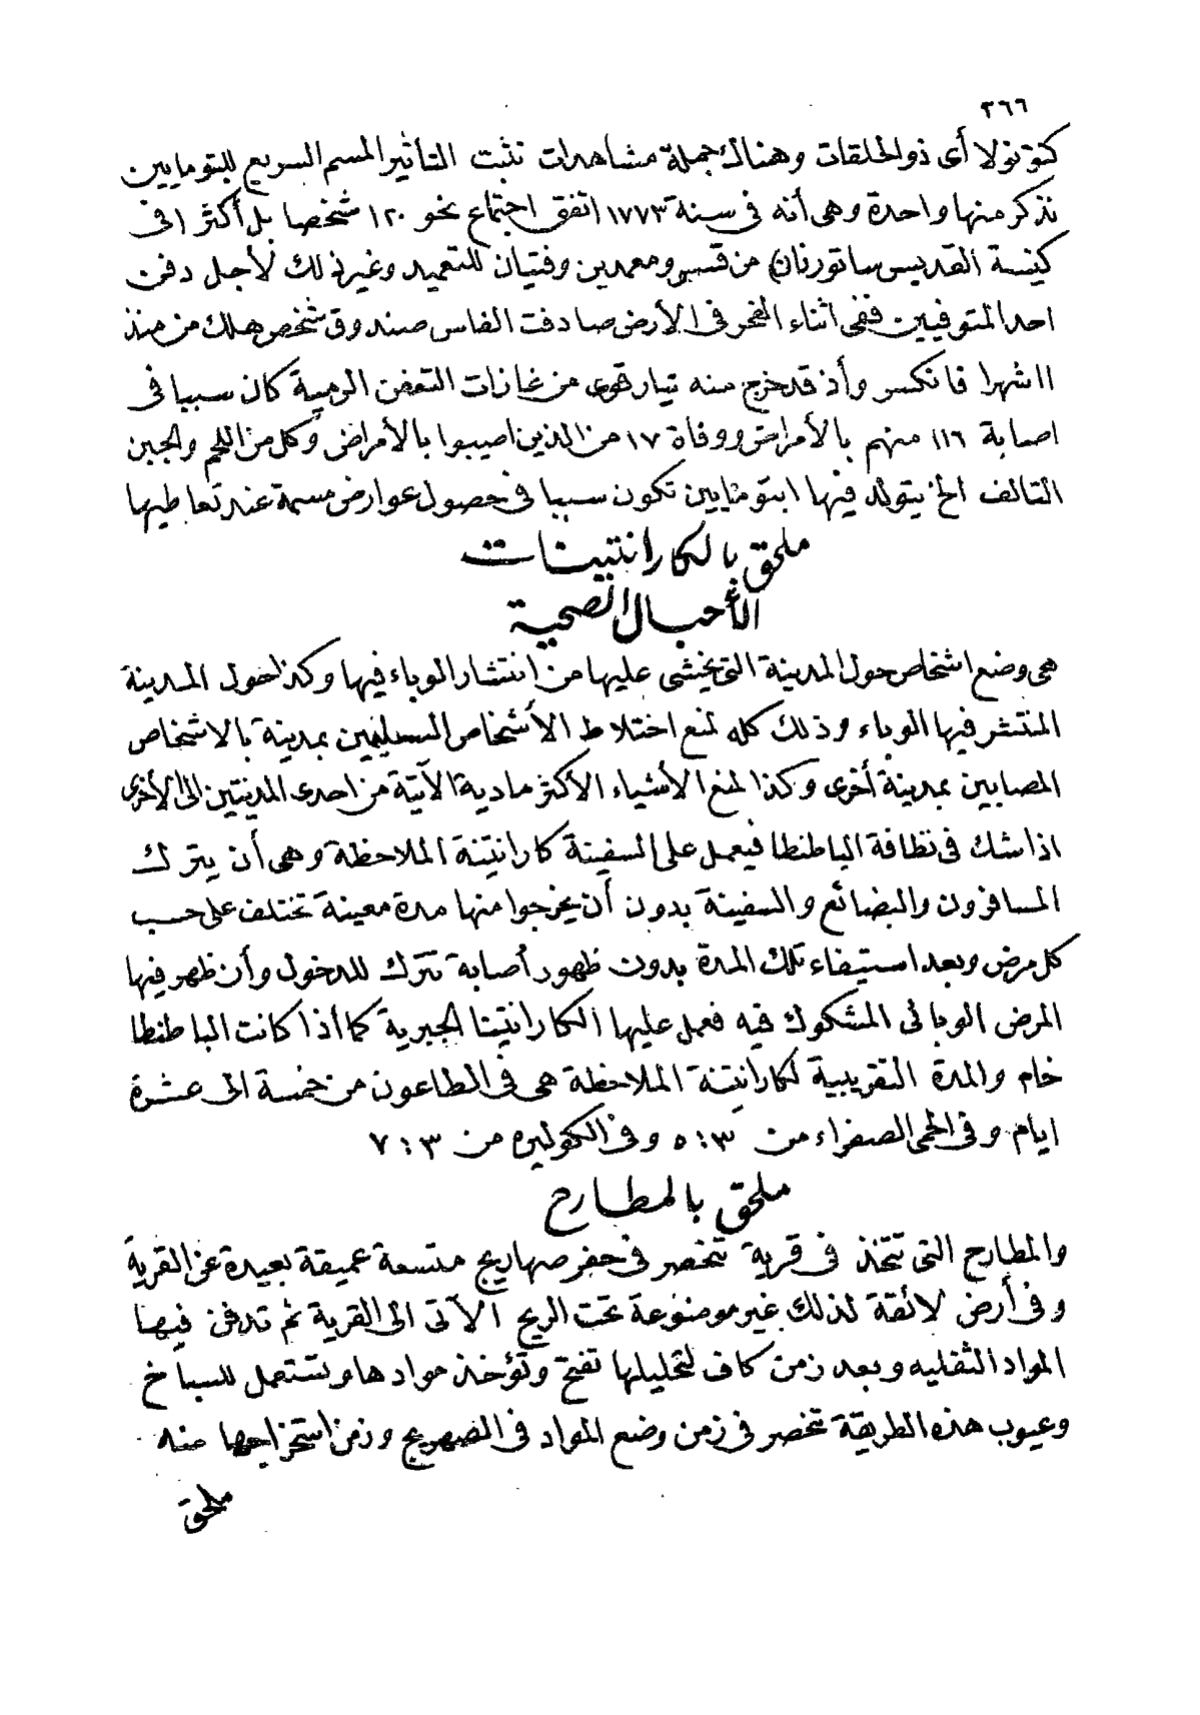 ٢٦٦
كنوتولا أى ذو الحلقات وهناك جملة مشاهدات تثبت التأثير المسم السريع للبتومايين
نذكر منها واحدة وهى أنه فى سنة ١٧٧٣ اتفق اجتماع نحو ١٢٠ شخصا بل أكثر فى
كنيسة القديس ساتورنان من قسس ومعمدين وفتيان للتعميد وغير ذلك لأجل دفن
احد المتوفيين ففى اثناء الفحر فى الأرض صادفت الفاس صندوق شخص هلك من منذ
١١ شهرا فانكسر وأذ قد خرج منه تيار قوى من غازات التعفن الرمية كان سببا فى
اصابة ١١٦ منهم بالأمراض ووفاة ١٧ من الذين اصيبوا بالأمراض وكل من اللحم والجبن
التالف الخ يتولد فيها ابتومايين تكون سببا فى حصول عوارض مسمة عند تعاطيها
ملحق بالكارانتينات
الأحبال الصحية
هى وضع اشخاص حول المدينة التى يخشى عليها من انتشار الوباء فيها وكذا حول المدينة
المنتشر فيها الوباء وذلك كله لمنع اختلاط الأشخاص السليمين بمدينة بالاشخاص
المصابين بمدينة أخرى وكذا لمنع الأشياء الأكثر مادية الآتية من احدى المدينتين الى الأخرى
اذا شك فى نظافة الباطنطا فيعمل على السفينة كارانتينة الملاحظة وهى أن يترك
المسافرون والبضائع والسفينة بدون أن يخرجوا منها مدة معينة تختلف على حسب
كل مرض وبعد استيفاء تلك المدة بدون ظهور أصابة تترك للدخول وأن ظهر فيها
المرض الوبائى المشكوك فيه فعمل عليها الكارانتينا الجبرية كما أذا كانت الباطنطا
خام والمدة التقريبية لكارانتنة الملاحظة هى فى الطاعون من خمسة الى عشرة
ايام وفى الحمى الصفراء من ٣ : ٥ وفى الكوليره من ٣ : ٧
ملحق بالمطارح
والمطارح التى تتخذ فى قرية تنحصر فى حفر صهاريج متسعة عميقة بعيدة عن القرية
وفى أرض لائقة لذلك غير موضوعة تحت الريح الآتى الى القرية ثم تدفن فيها
المواد الثفليه وبعد زمن كاف لتحليلها تفتح وتؤخذ موادها وتستعمل للسباخ
وعيوب هذه الطريقة تنحصر فى زمن وضع المواد فى الصهريج وزمن استخراجها منه
ملحق